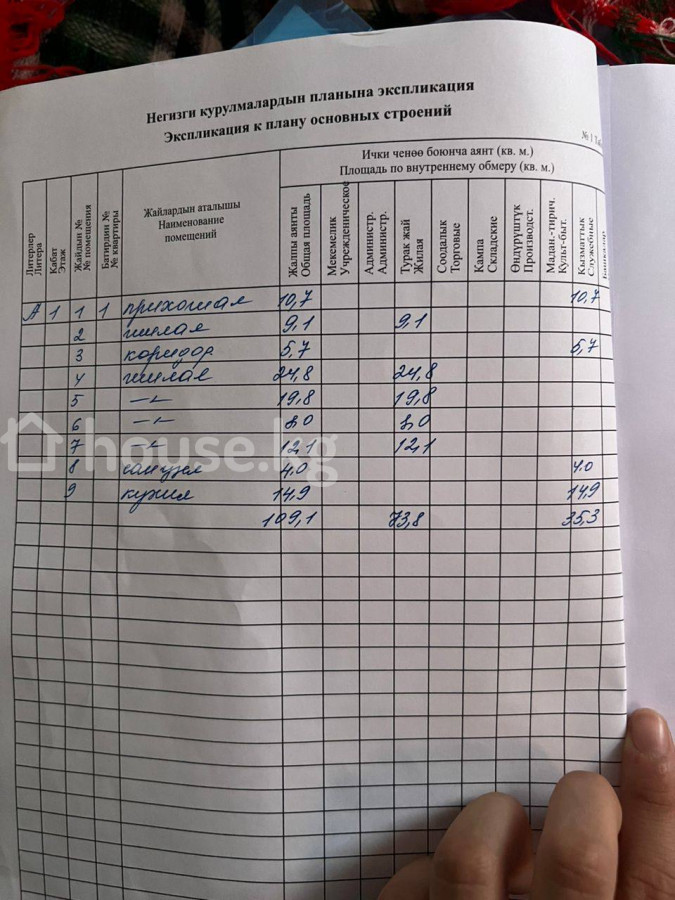 Негизги курулмалардын планына экспликация
Экспликация к плану основных строений
№ 1 Таб
Литерлер
Литера
Кабат
Этаж
Жайдын №
№ помещения
Батирдин №
№ квартиры
Жайлардын аталышы
Наименование
помещений
Ички ченөө боюнча аянт (кв. м.)
Площадь по внутреннему обмеру (кв. м.)
Жалпы аянты
Общая площадь
Мекемелик
Учрежденическое
Администр.
Администр.
Турак жай
Жилая
Соодалык
Торговые
Кампа
Складские
Өндүрүштүк
Производст.
Мадан.-тирич.
Культ-быт.
Кызматтык
Служебные
А 1 1 1 прихожая 10,7 10,7
2 жилая 9,1 9,1
3 коридор 5,7 5,7
4 жилая 24,8 24,8
5 –"– 19,8 19,8
6 –"– 8,0 8,0
7 –"– 12,1 12,1
8 санузел 4,0 4,0
9 кухня 14,9 14,9
109,1 73,8 35,3
house.kg